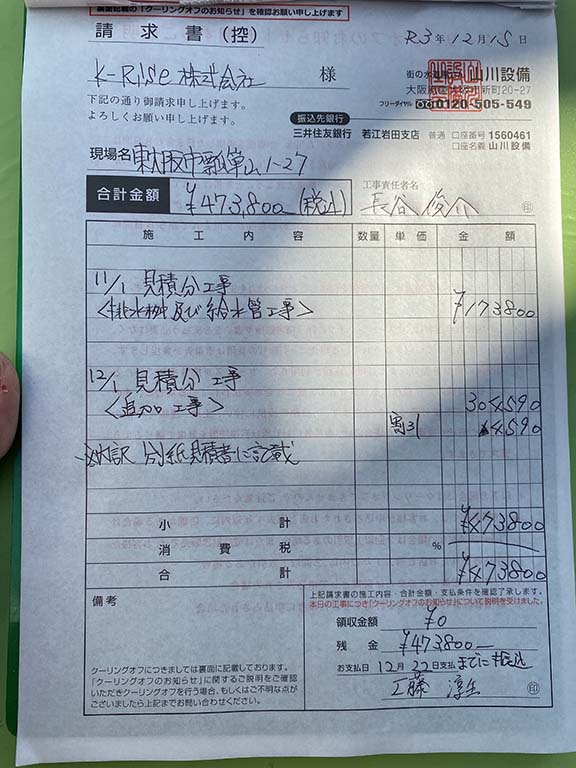 裏面記載の「クーリングオフのお知らせ」を確認お願い申し上げます
請求書(控)
R3年12月15日
K-Rise株式会社 様
街の水道 山川設備
大阪府 新町20-27
フリーダイヤル 0120-505-549
下記の通り御請求申し上げます。
よろしくお願い申し上げます。
振込先銀行
三井住友銀行 若江岩田支店 普通 口座番号 1560461
口座名義 山川設備
現場名 東大阪市瓢箪山1-27
合計金額 ¥473,800-(税込)
工事責任者名
長谷 俊介 印
施工内容 数量 単価 金額
11/1 見積分工事
<排水桝及び給水管工事> ¥173800
12/1 見積分工事
<追加工事> 304590
割引 4590
内訳 別紙見積書に記載
小計 ¥473800
消費税 %
合計 ¥473800
備考
クーリングオフにつきましては裏面に記載しております。
「クーリングオフのお知らせ」に関するご説明をご確認
いただきクーリングオフを行う場合、もしくはご不明な点が
ございましたら上記までお問い合わせ下さい。
上記請求書の施工内容・合計金額・支払条件を確認了承します。
本日の工事につき「クーリングオフのお知らせ」について説明を受けました。
領収金額 ¥0
残金 ¥473,800-
お支払日 12月22日支払までに振込
工藤 淳生 印